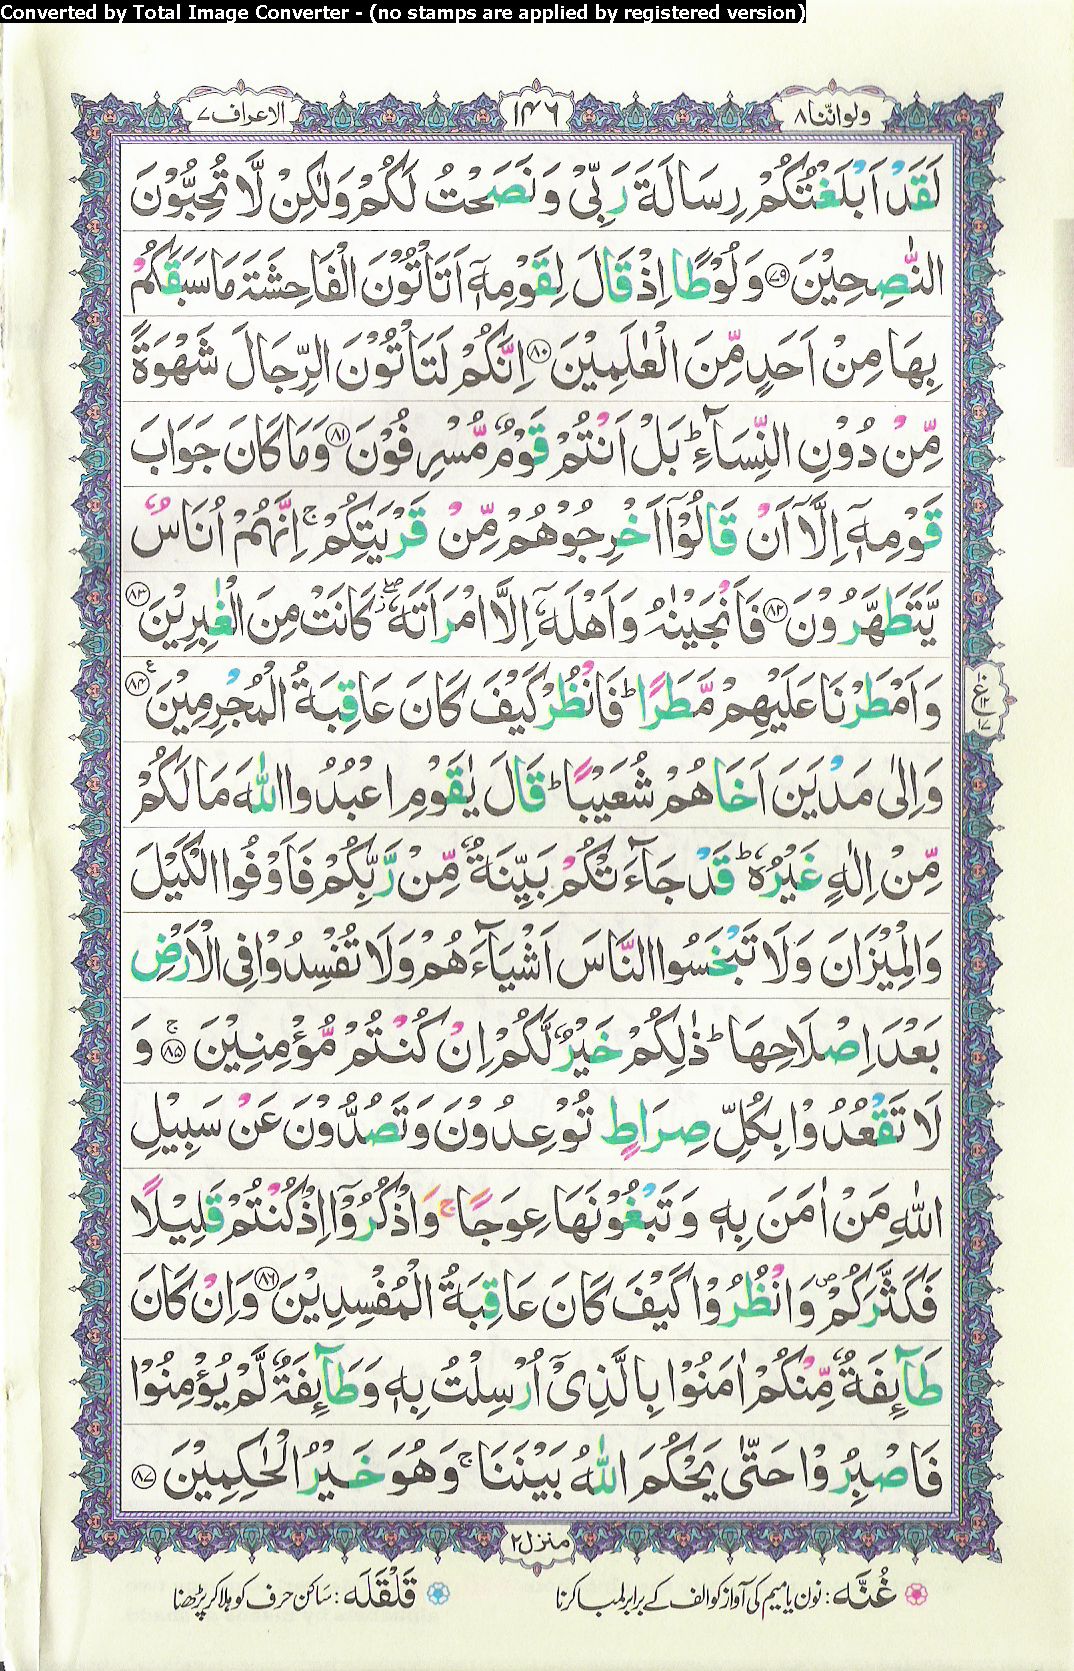 Converted by Total Image Converter - (no stamps are applied by registered version)
ولواننا ٨
١٤٦
الاعراف ٧
لَقَدْ اَبْلَغْتُكُمْ رِسَالَةَ رَبِّیْ وَ نَصَحْتُ لَكُمْ وَلٰكِنْ لَّا تُحِبُّوْنَ
النّٰصِحِیْنَ ﴿٧٩﴾ وَ لُوْطًا اِذْ قَالَ لِقَوْمِهٖۤ اَتَاْتُوْنَ الْفَاحِشَةَ مَا سَبَقَكُمْ
بِهَا مِنْ اَحَدٍ مِّنَ الْعٰلَمِیْنَ ﴿٨٠﴾ اِنَّكُمْ لَتَاْتُوْنَ الرِّجَالَ شَهْوَةً
مِّنْ دُوْنِ النِّسَآءِ ؕ بَلْ اَنْتُمْ قَوْمٌ مُّسْرِفُوْنَ ﴿٨١﴾ وَمَا كَانَ جَوَابَ
قَوْمِهٖۤ اِلَّاۤ اَنْ قَالُوْۤا اَخْرِجُوْهُمْ مِّنْ قَرْیَتِكُمْ ۚ اِنَّهُمْ اُنَاسٌ
یَّتَطَهَّرُوْنَ ﴿٨٢﴾ فَاَنْجَیْنٰهُ وَاَهْلَهٗۤ اِلَّا امْرَاَتَهٗ ۖؗ كَانَتْ مِنَ الْغٰبِرِیْنَ ﴿٨٣﴾
وَاَمْطَرْنَا عَلَیْهِمْ مَّطَرًا ؕ فَانْظُرْ كَیْفَ كَانَ عَاقِبَةُ الْمُجْرِمِیْنَ ﴿٨٤﴾ ع
١٠
ع
١٢
١٧
وَاِلٰی مَدْیَنَ اَخَاهُمْ شُعَیْبًا ؕ قَالَ یٰقَوْمِ اعْبُدُوا اللّٰهَ مَا لَكُمْ
مِّنْ اِلٰهٍ غَیْرُهٗ ؕ قَدْ جَآءَتْكُمْ بَیِّنَةٌ مِّنْ رَّبِّكُمْ فَاَوْفُوا الْكَیْلَ
وَالْمِیْزَانَ وَلَا تَبْخَسُوا النَّاسَ اَشْیَآءَهُمْ وَلَا تُفْسِدُوْا فِی الْاَرْضِ
بَعْدَ اِصْلَاحِهَا ؕ ذٰلِكُمْ خَیْرٌ لَّكُمْ اِنْ كُنْتُمْ مُّؤْمِنِیْنَ ﴿٨٥﴾ ۚ وَ
لَا تَقْعُدُوْا بِكُلِّ صِرَاطٍ تُوْعِدُوْنَ وَتَصُدُّوْنَ عَنْ سَبِیْلِ
اللّٰهِ مَنْ اٰمَنَ بِهٖ وَتَبْغُوْنَهَا عِوَجًا ۚ وَاذْكُرُوْۤا اِذْ كُنْتُمْ قَلِیْلًا
فَكَثَّرَكُمْ ۪ وَانْظُرُوْا كَیْفَ كَانَ عَاقِبَةُ الْمُفْسِدِیْنَ ﴿٨٦﴾ وَاِنْ كَانَ
طَآىِٕفَةٌ مِّنْكُمْ اٰمَنُوْا بِالَّذِیْۤ اُرْسِلْتُ بِهٖ وَطَآىِٕفَةٌ لَّمْ یُؤْمِنُوْا
فَاصْبِرُوْا حَتّٰی یَحْكُمَ اللّٰهُ بَیْنَنَا ۚ وَهُوَ خَیْرُ الْحٰكِمِیْنَ ﴿٨٧﴾
منزل ٢
غُنَّه : نون یا میم کی آواز کو الف کے برابر لمبا کرنا
قَلْقَلَه : ساکن حرف کو ہلا کر پڑھنا